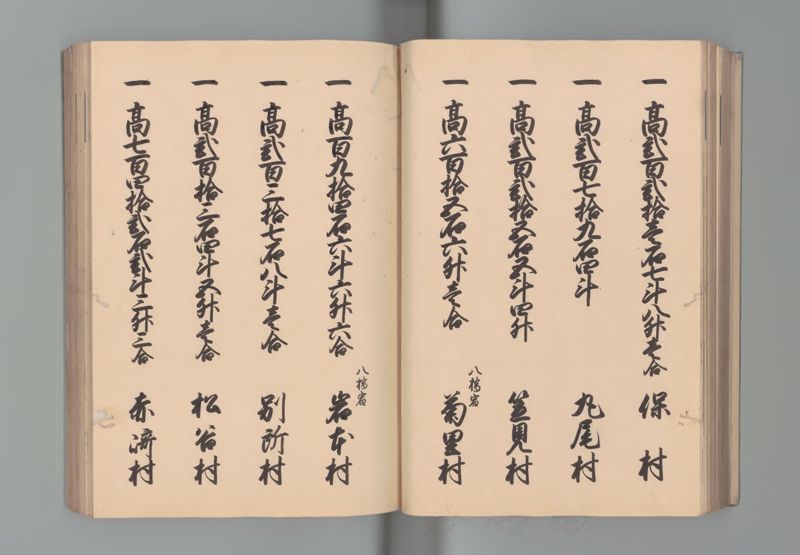 一 高弐百弐拾壱石七斗八升壱合 保村
一 高弐百七拾九石四斗 丸尾村
一 高弐百弐拾五石五斗四升 笠見村
一 高六百拾五石六升壱合 八橋宿 菊里村
一 高百九拾四石六斗六升六合 八橋宿 岩本村
一 高弐百三拾七石八斗壱合 別所村
一 高弐百拾三石四斗五升壱合 松谷村
一 高七百四拾弐石弐斗三升三合 赤﨑村